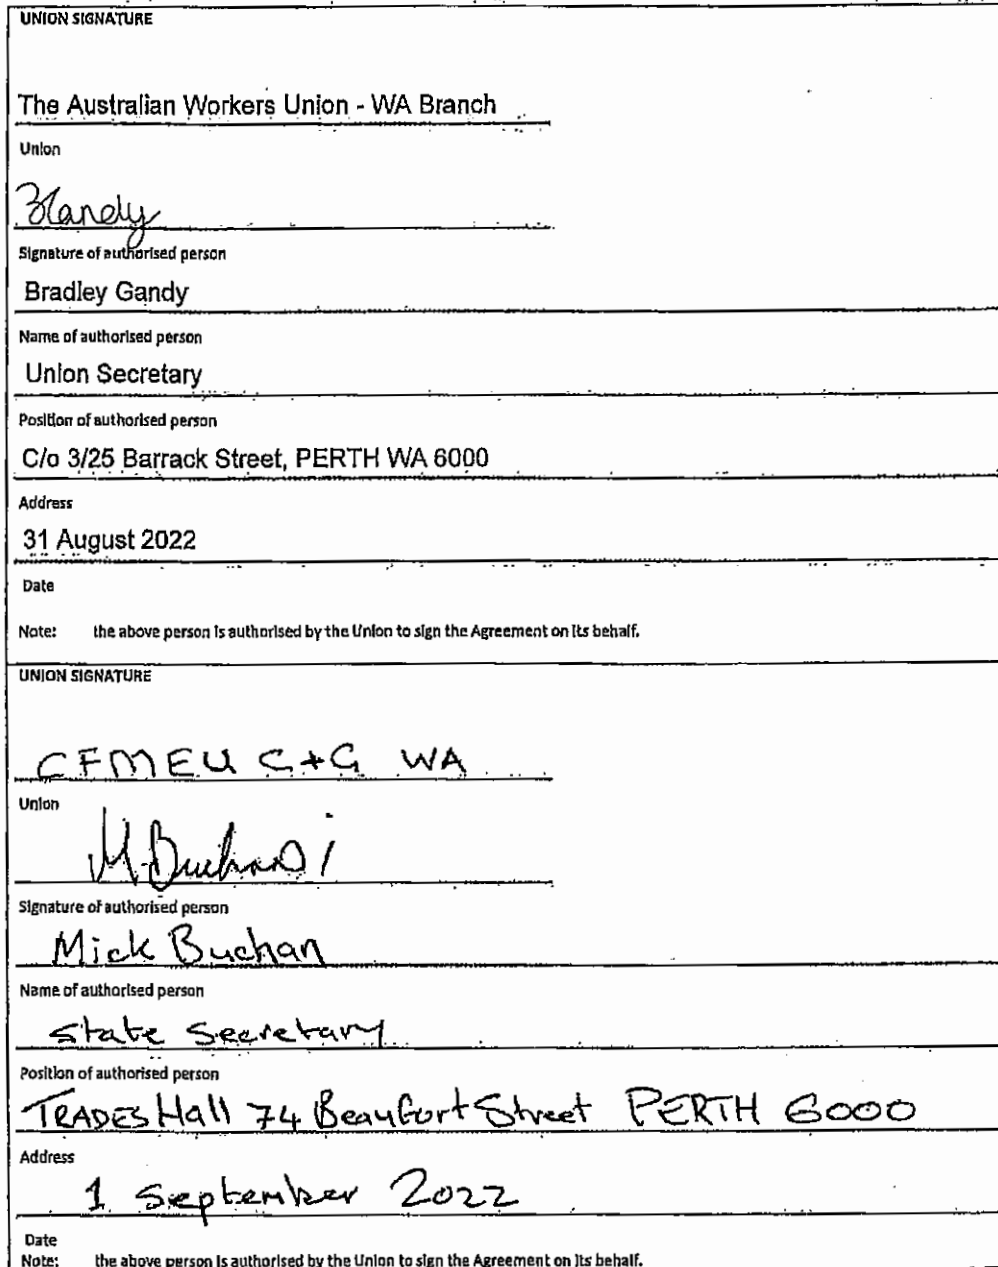 UNION SIGNATURE
The Australian Workers Union - WA Branch
Union
BGandy
Signature of authorised person
Bradley Gandy
Name of authorised person
Union Secretary
Position of authorised person
C/o 3/25 Barrack Street, PERTH WA 6000
Address
31 August 2022
Date
Note: the above person is authorised by the Union to sign the Agreement on its behalf.
UNION SIGNATURE
CFMEU C+G WA
Union
M Buchan
Signature of authorised person
Mick Buchan
Name of authorised person
State Secretary
Position of authorised person
TRADES Hall 74 Beaufort Street PERTH 6000
Address
1 September 2022
Date
Note: the above person is authorised by the Union to sign the Agreement on its behalf.